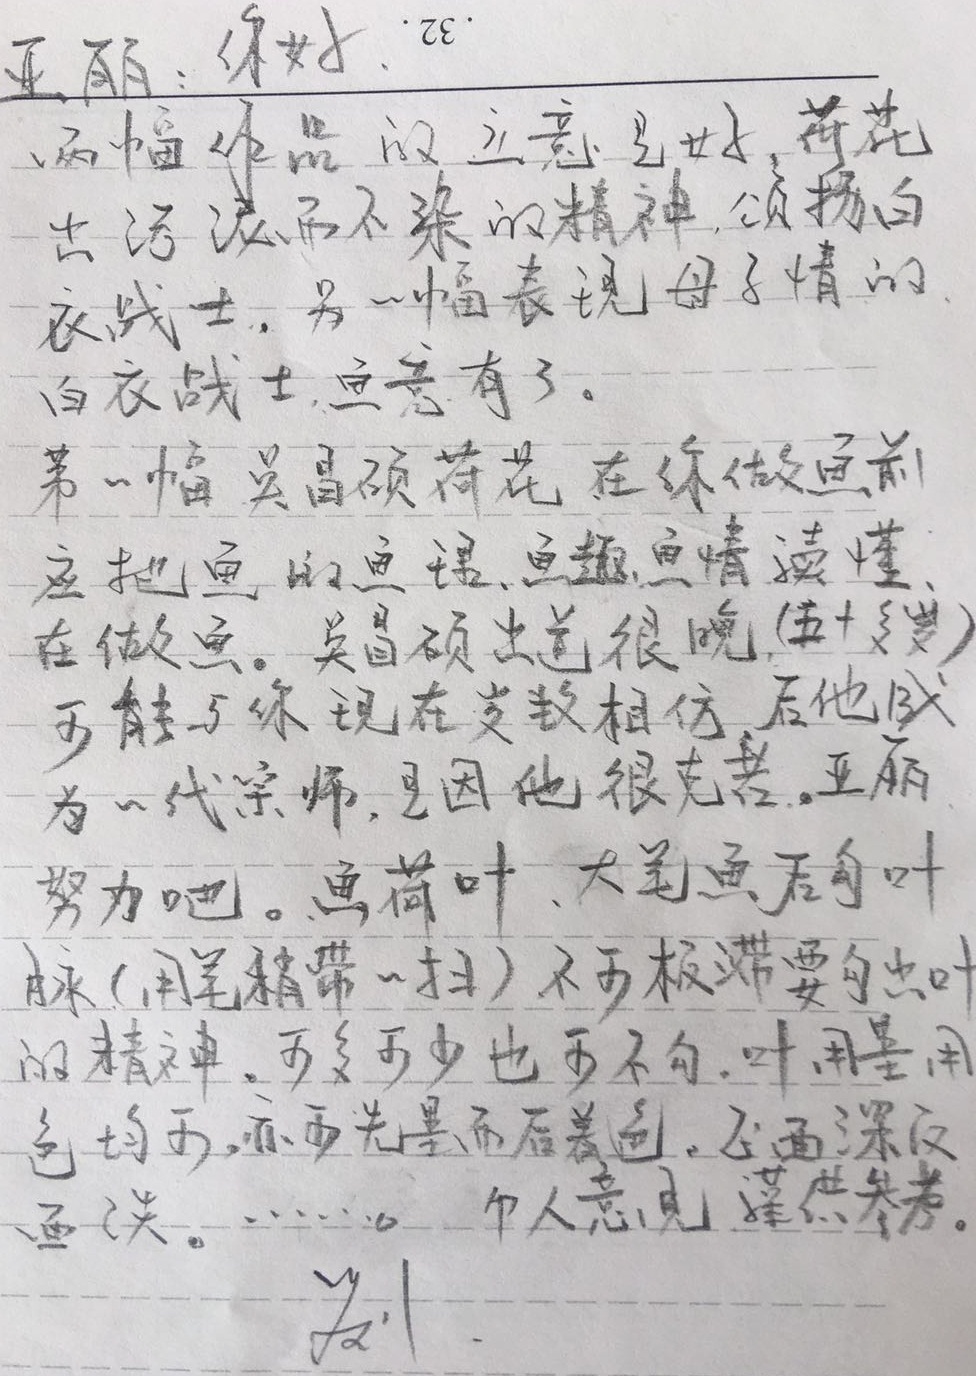 .32.
亚丽：你好.
两幅作品的立意是好，荷花
出污泥而不染的精神，颂扬白
衣战士。另一幅表现母子情的
白衣战士，画意有了。
第一幅吴昌硕荷花在你做画前
应把画的画语、画趣、画情读懂、
在做画。吴昌硕出道很晚（五十多岁）
可能与你现在岁数相仿 后他成
为一代宗师，是因他很克苦。亚丽
努力吧。画荷叶、大笔画后勾叶
脉（用笔稍带一扫）不可板滞要勾出叶
的精神。可多可少也可不勾，叶用墨用
色均可，亦可先墨而后着色。正面深反
面淡。……。 个人意见 谨供参考。